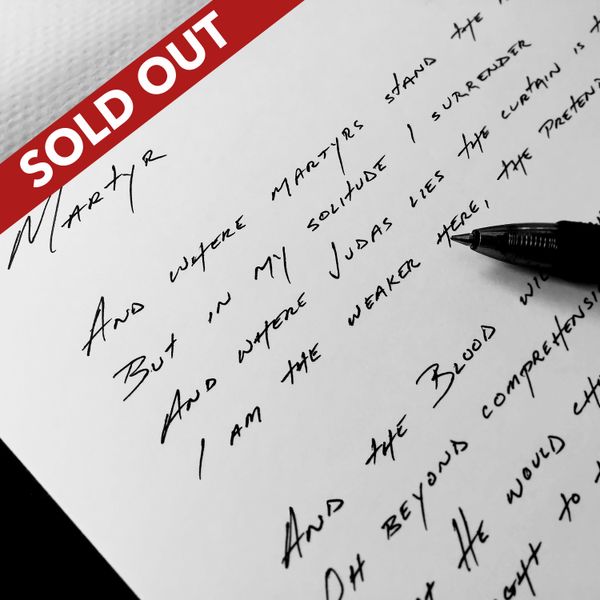 SOLD OUT
MARTYR
AND WHERE MARTYRS STAND THE
BUT IN MY SOLITUDE I SURRENDER
AND WHERE JUDAS LIES THE CURTAIN IS
I AM THE WEAKER HERE, THE
AND THE BLOOD
OH BEYOND
HE WOULD
TO